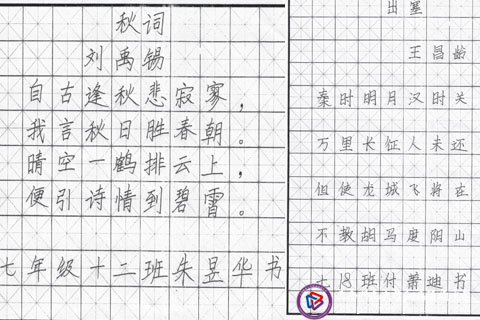 秋词
刘禹锡
自古逢秋悲寂寥，
我言秋日胜春朝。
晴空一鹤排云上，
便引诗情到碧霄。
七年级十二班朱昱华书
出塞
王昌龄
秦时明月汉时关
万里长征人未还
但使龙城飞将在
不教胡马度阴山
七18班付萧迪书